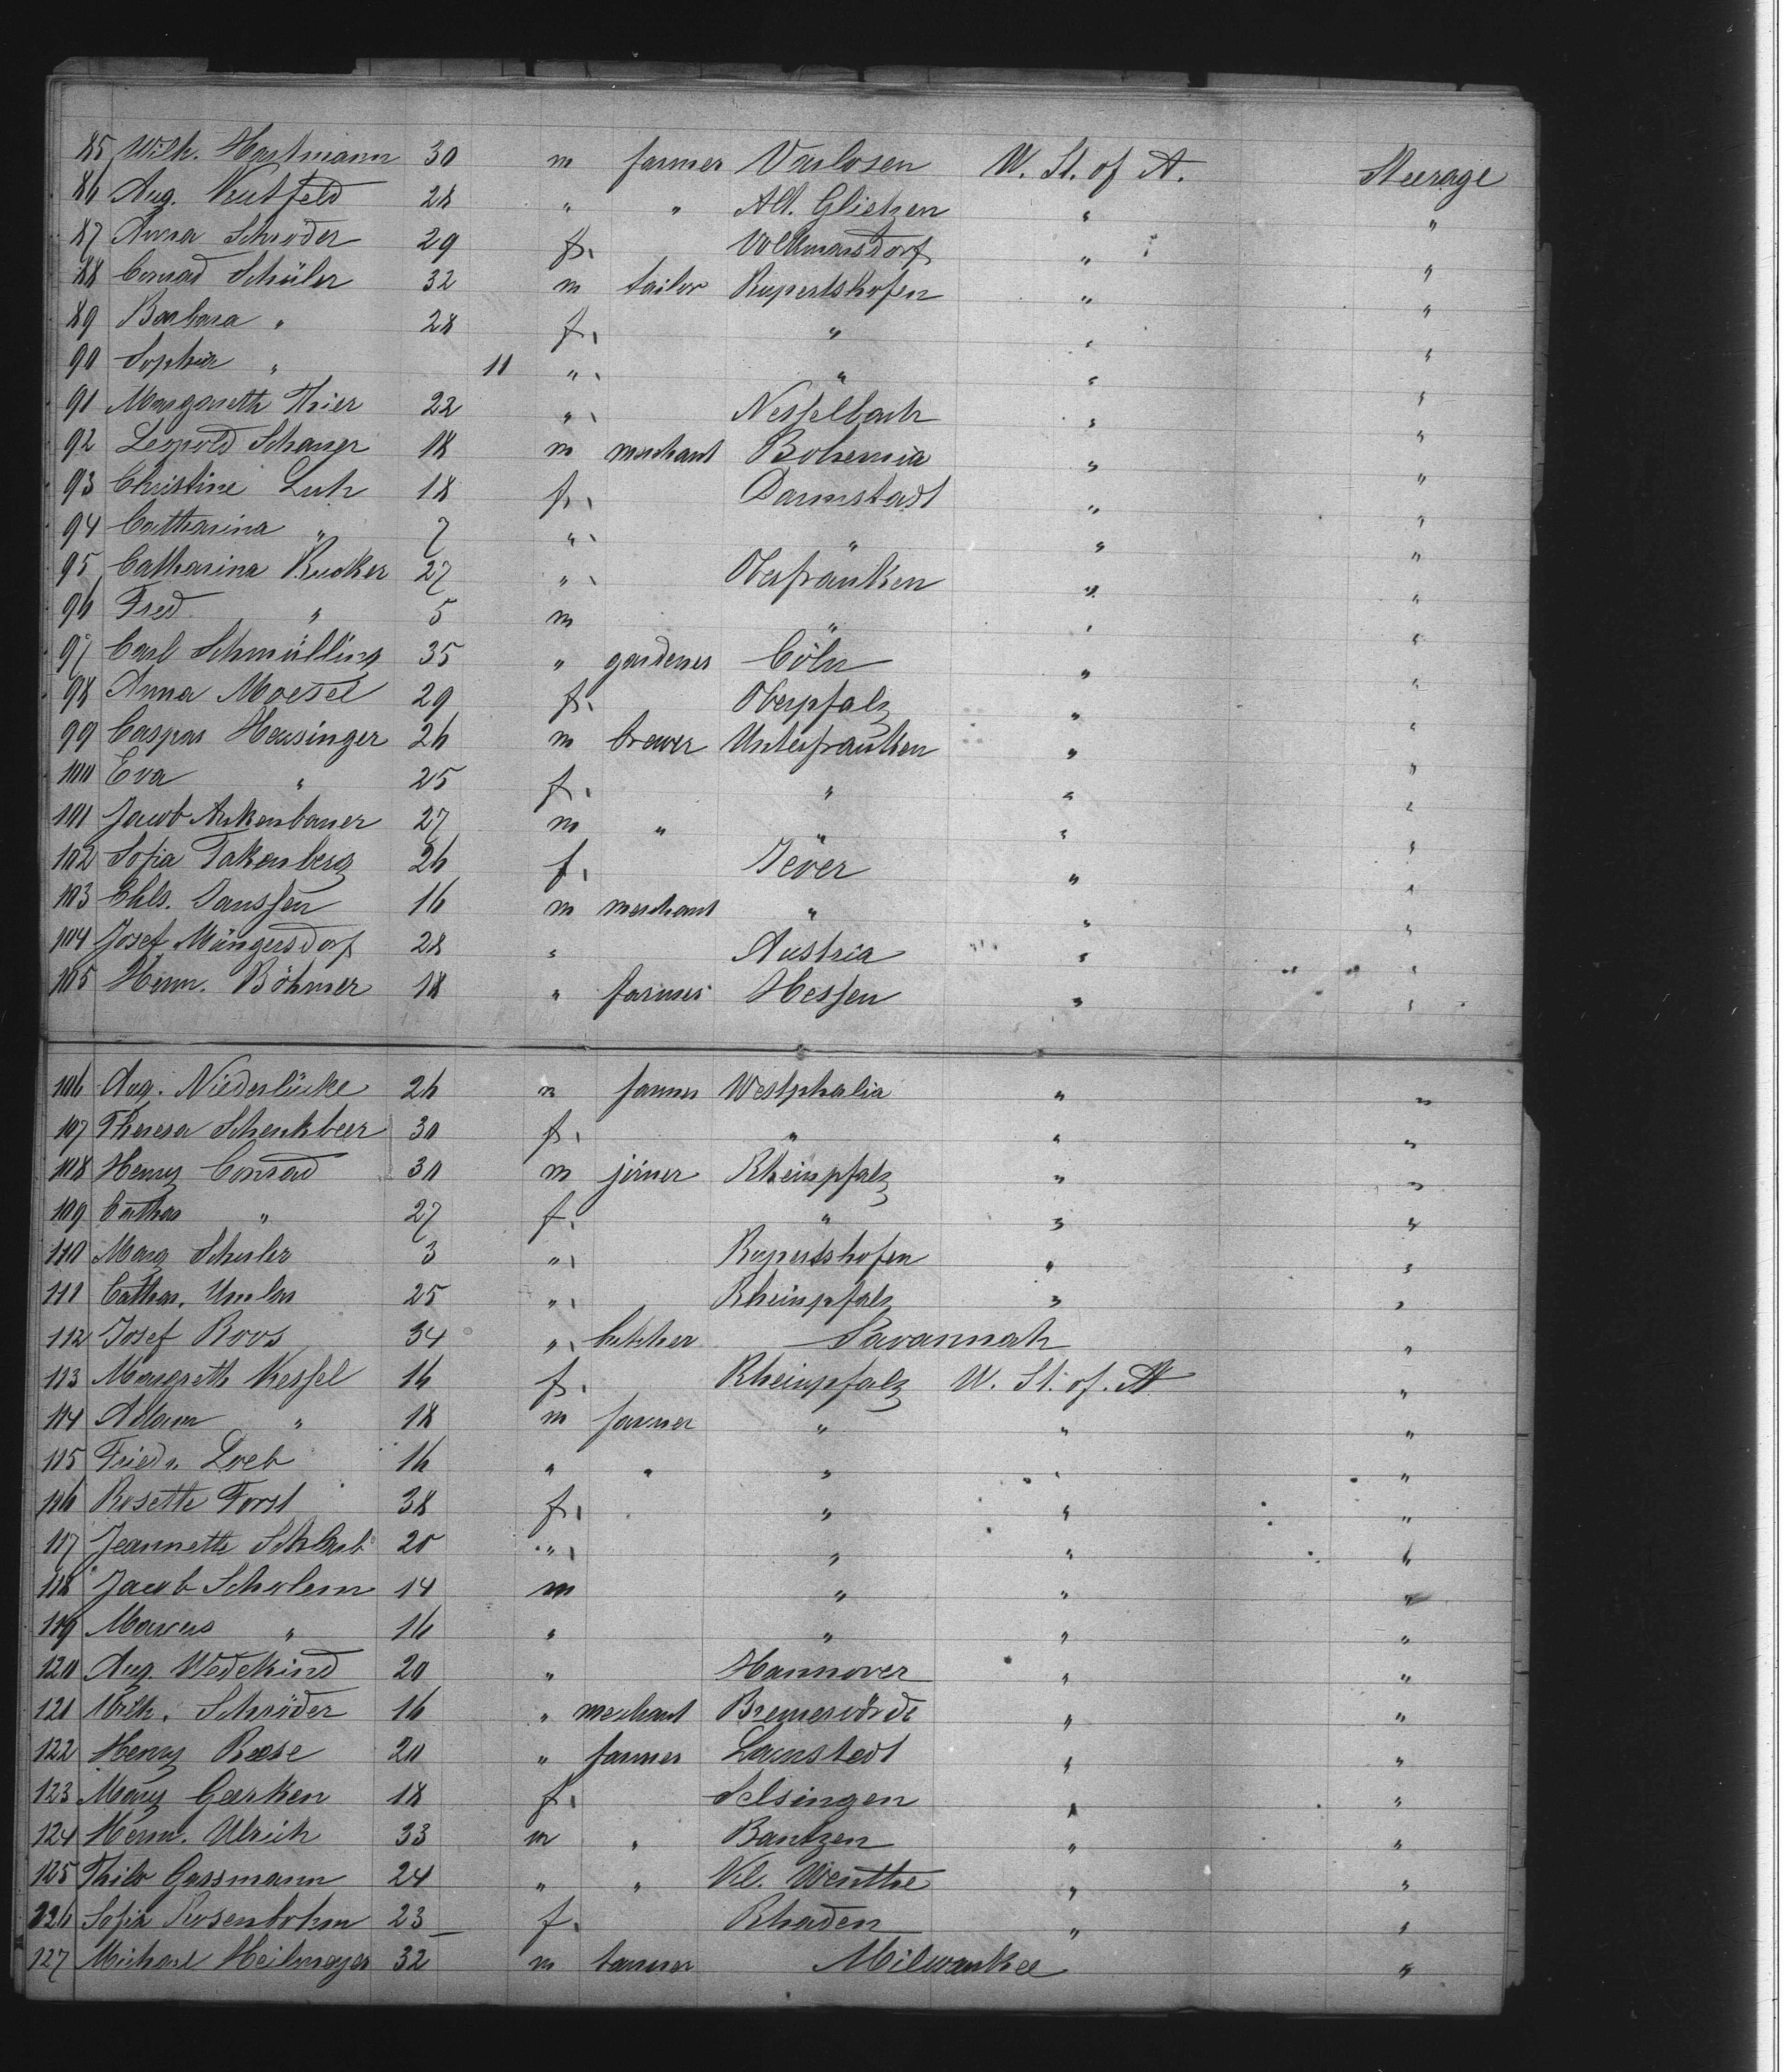 85 Wilh. Hartmann 30 m farmer Varlosen U. St. of A. Steerage
86 Aug. Neutfeld 28 " " Alt. Glietzen " "
87 Anna Schröder 29 f. Volkmarsdorf " "
88 Conrad Schüler 32 m tailor Rupertshofen " "
89 Barbara " 28 f. " " "
90 Sophia " 11 " " " "
91 Margareth Thier 22 " Nesselbach " "
92 Leopold Schauer 18 m merchant Bohemia " "
93 Christine Luh 18 f. Darmstadt " "
94 Catharina " 7 " " " "
95 Catharina Rucker 27 " Oberfranken " "
96 Fred " 5 m " " "
97 Carl Schmülling 35 " gardener Cöln " "
98 Anna Moesel 29 f. Oberpfalz " "
99 Caspar Heusinger 26 m brewer Unterfranken " "
100 Eva " 25 f. " " "
101 Jacob Ankenbauer 27 m " " " "
102 Sofia Takenberg 26 f. Jever " "
103 Chls. Janssen 16 m merchant " " "
104 Josef Müngersdorf 28 " Austria " "
105 Herm. Böhmer 18 " farmer Hessen " "
106 Aug. Niederlücke 26 m farmer Westphalia " "
107 Theresa Schenkbeer 30 f. " " "
108 Henry Conrad 30 m joiner Rheinpfalz " "
109 Cathar " 27 f. " " "
110 Marg Schuler 3 " Rupertshofen " "
111 Cathar. Umlor 25 " Rheinpfalz " "
112 Josef Roos 34 " butcher Savannah "
113 Margreth Kessel 16 f. Rheinpfalz U. St. of. A "
114 Adam " 18 m farmer " " "
115 Friedr. Loeb 16 " " " " "
116 Rosette Forst 38 f. " " "
117 Jeannette 20 " " " "
118 Jacob Scholem 14 m " " "
119 Marcus " 16 " " " "
120 Aug. Wedekind 20 " Hannover " "
121 Wilh. Schröder 16 " merchant Bremervörde " "
122 Henry Reese 20 " farmer Lamstedt " "
123 Mary Gerken 18 f. Selsingen " "
124 Herm. Ulrich 33 m " Bautzen " "
125 Thilo Gassmann 24 " " Kl. Wenthe " "
126 Sofia Rosenbohm 23 f. Rhaden " "
127 Michael Heilmeyer 32 m tanner Milwaukee "